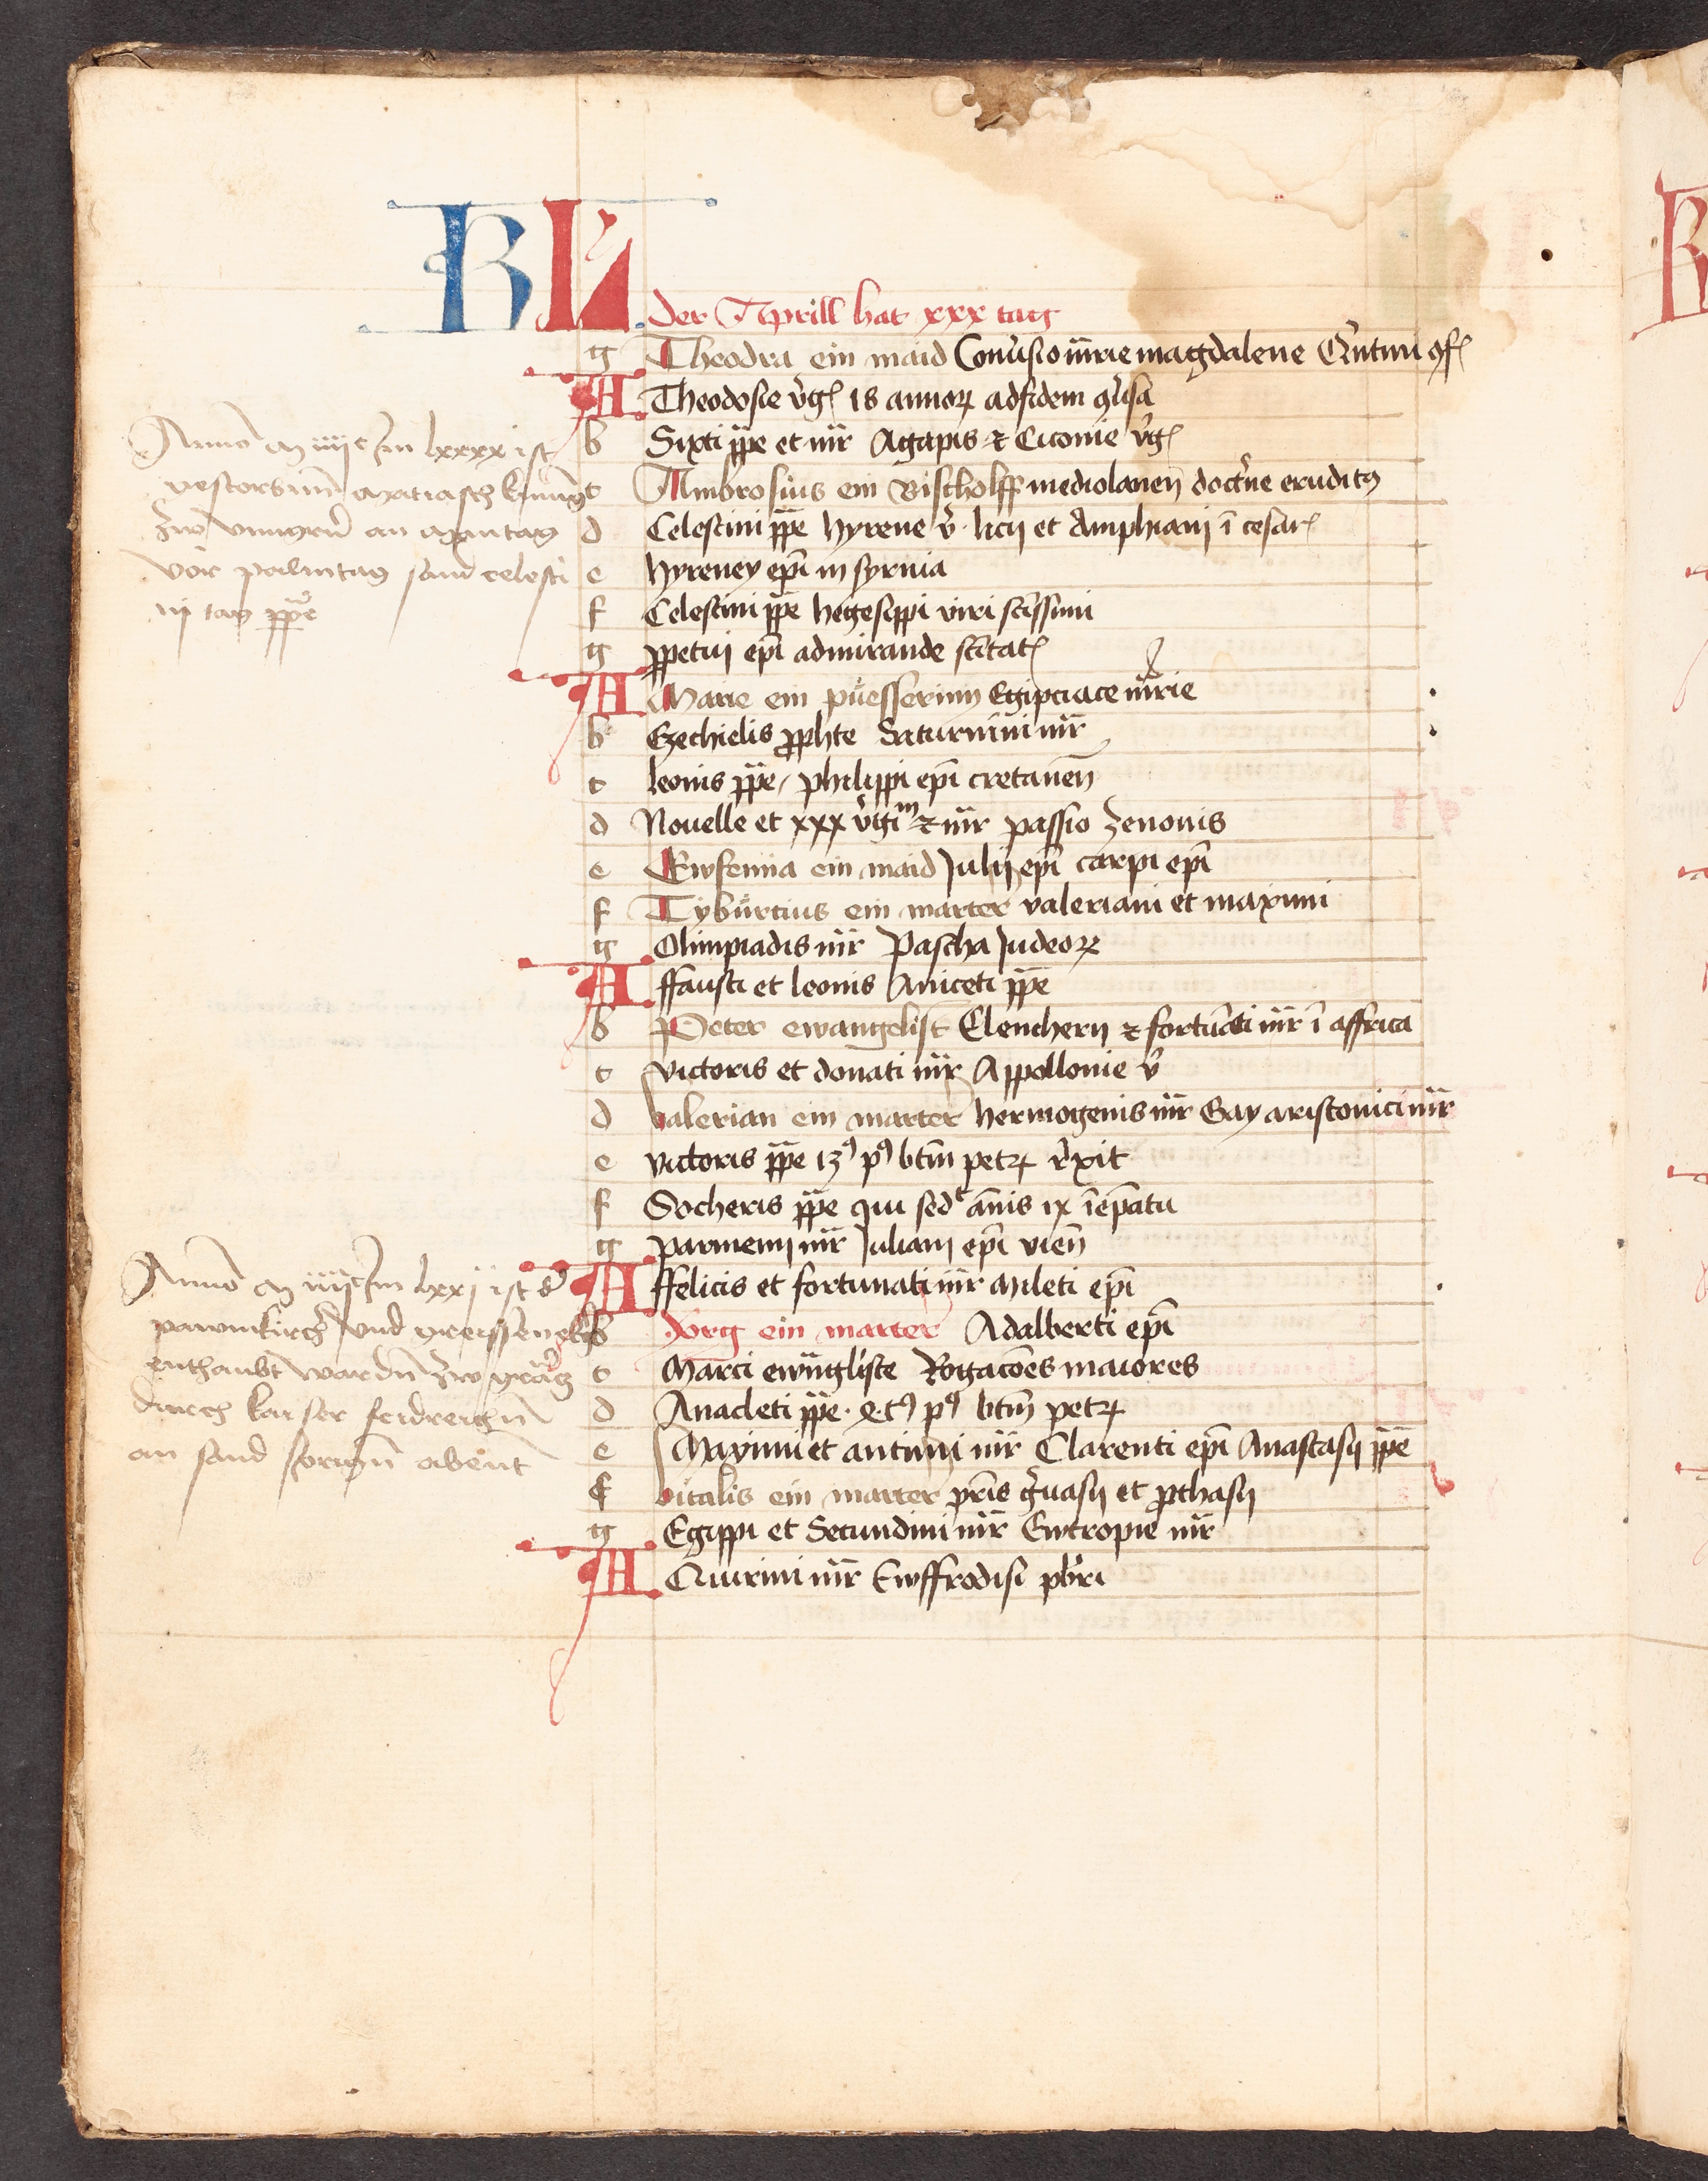 KL
der Aprill hat xxx tag
g Theodra ein maid Conũsio mrie magdalene Qũtini ꝯf
A Theodosie v̉g 18 annoꝝ ad fidem ꝯũsa
b Sixti pp̄e et mr̄ Agapis ⁊ Cicome v̉g
c Ambrosius ein Bischolff mediolanen̄ doctⁱne eruditꝰ
d Celestini pp̄e hyrene v̉ . licij et Amphiani ī cesar
e hyreney ep̄i in syrmia
f Celestini pp̄e hegesippi viri sc̄issimi
g ꝑpetui ep̄i admirande sc̄itat
A Marie ein püesserinn Egipciace mr̄ie
b Ezechielis ꝓphte Saturnini mr̄
c leonis pp̄e / philippi ep̄i cretanen̄
d Nouelle et xxx v̉gim ⁊ mr̄ passio Zenonis
e Ewfemia ein maid Julij ep̄i carpi ep̄i
f Tybürtius ein marter valeriani et maximi
g Olimpiadis mr̄ Pascha Judeoꝝ
A ffausti et leonis Aniceti pp̄e
b Peter ewangelist Elentherij ⁊ fortūati mr̄ ī affrica
c victoris et donati mr̄ Appollonie v̉
d valerian ein marter hermogenis mr̄ Gay aristonici mr̄
e victoris pp̄e 13ꝰ pꝰ bt̄m petꝝ rexit
f Socheris pp̄e qui sedt ān̄is ix ī ep̄atu
g parmenij mr̄ Juliani ep̄i vien̄
A ffelicis et fortunati mr̄ Mileti ep̄i
b Jorg ein marter Adalberti ep̄i
c Marci ewāgliste Rogacōes maiores
d Anacleti pp̄e . qͣtꝰ pꝰ bt̄m petꝝ
e Maximi et antimi mr̄ Clarenti ep̄i Anastasij pp̄e
f vitalis ein marter pr̄is g̉uasij et ꝓthasij
g Egippi et Secundini mr̄ Ewtropie mr̄
A Quirini mr̄ Ewffrodisi pb̄ri
Anno m iiijc Im lxxxx ist
vestorbnn̄ Matiasch kunig
Zw vnngrn̄ an mantag
vor palmtag sand celesti
nj tag pp̄e
Anno m iiijc Im lxxj ist d̉
pawmkirch̉ vnd greyssenek̉
enthaubt wardn̄ Zw grätz
durch kaiser fridreichn̄
an sand Jorign̄ abent